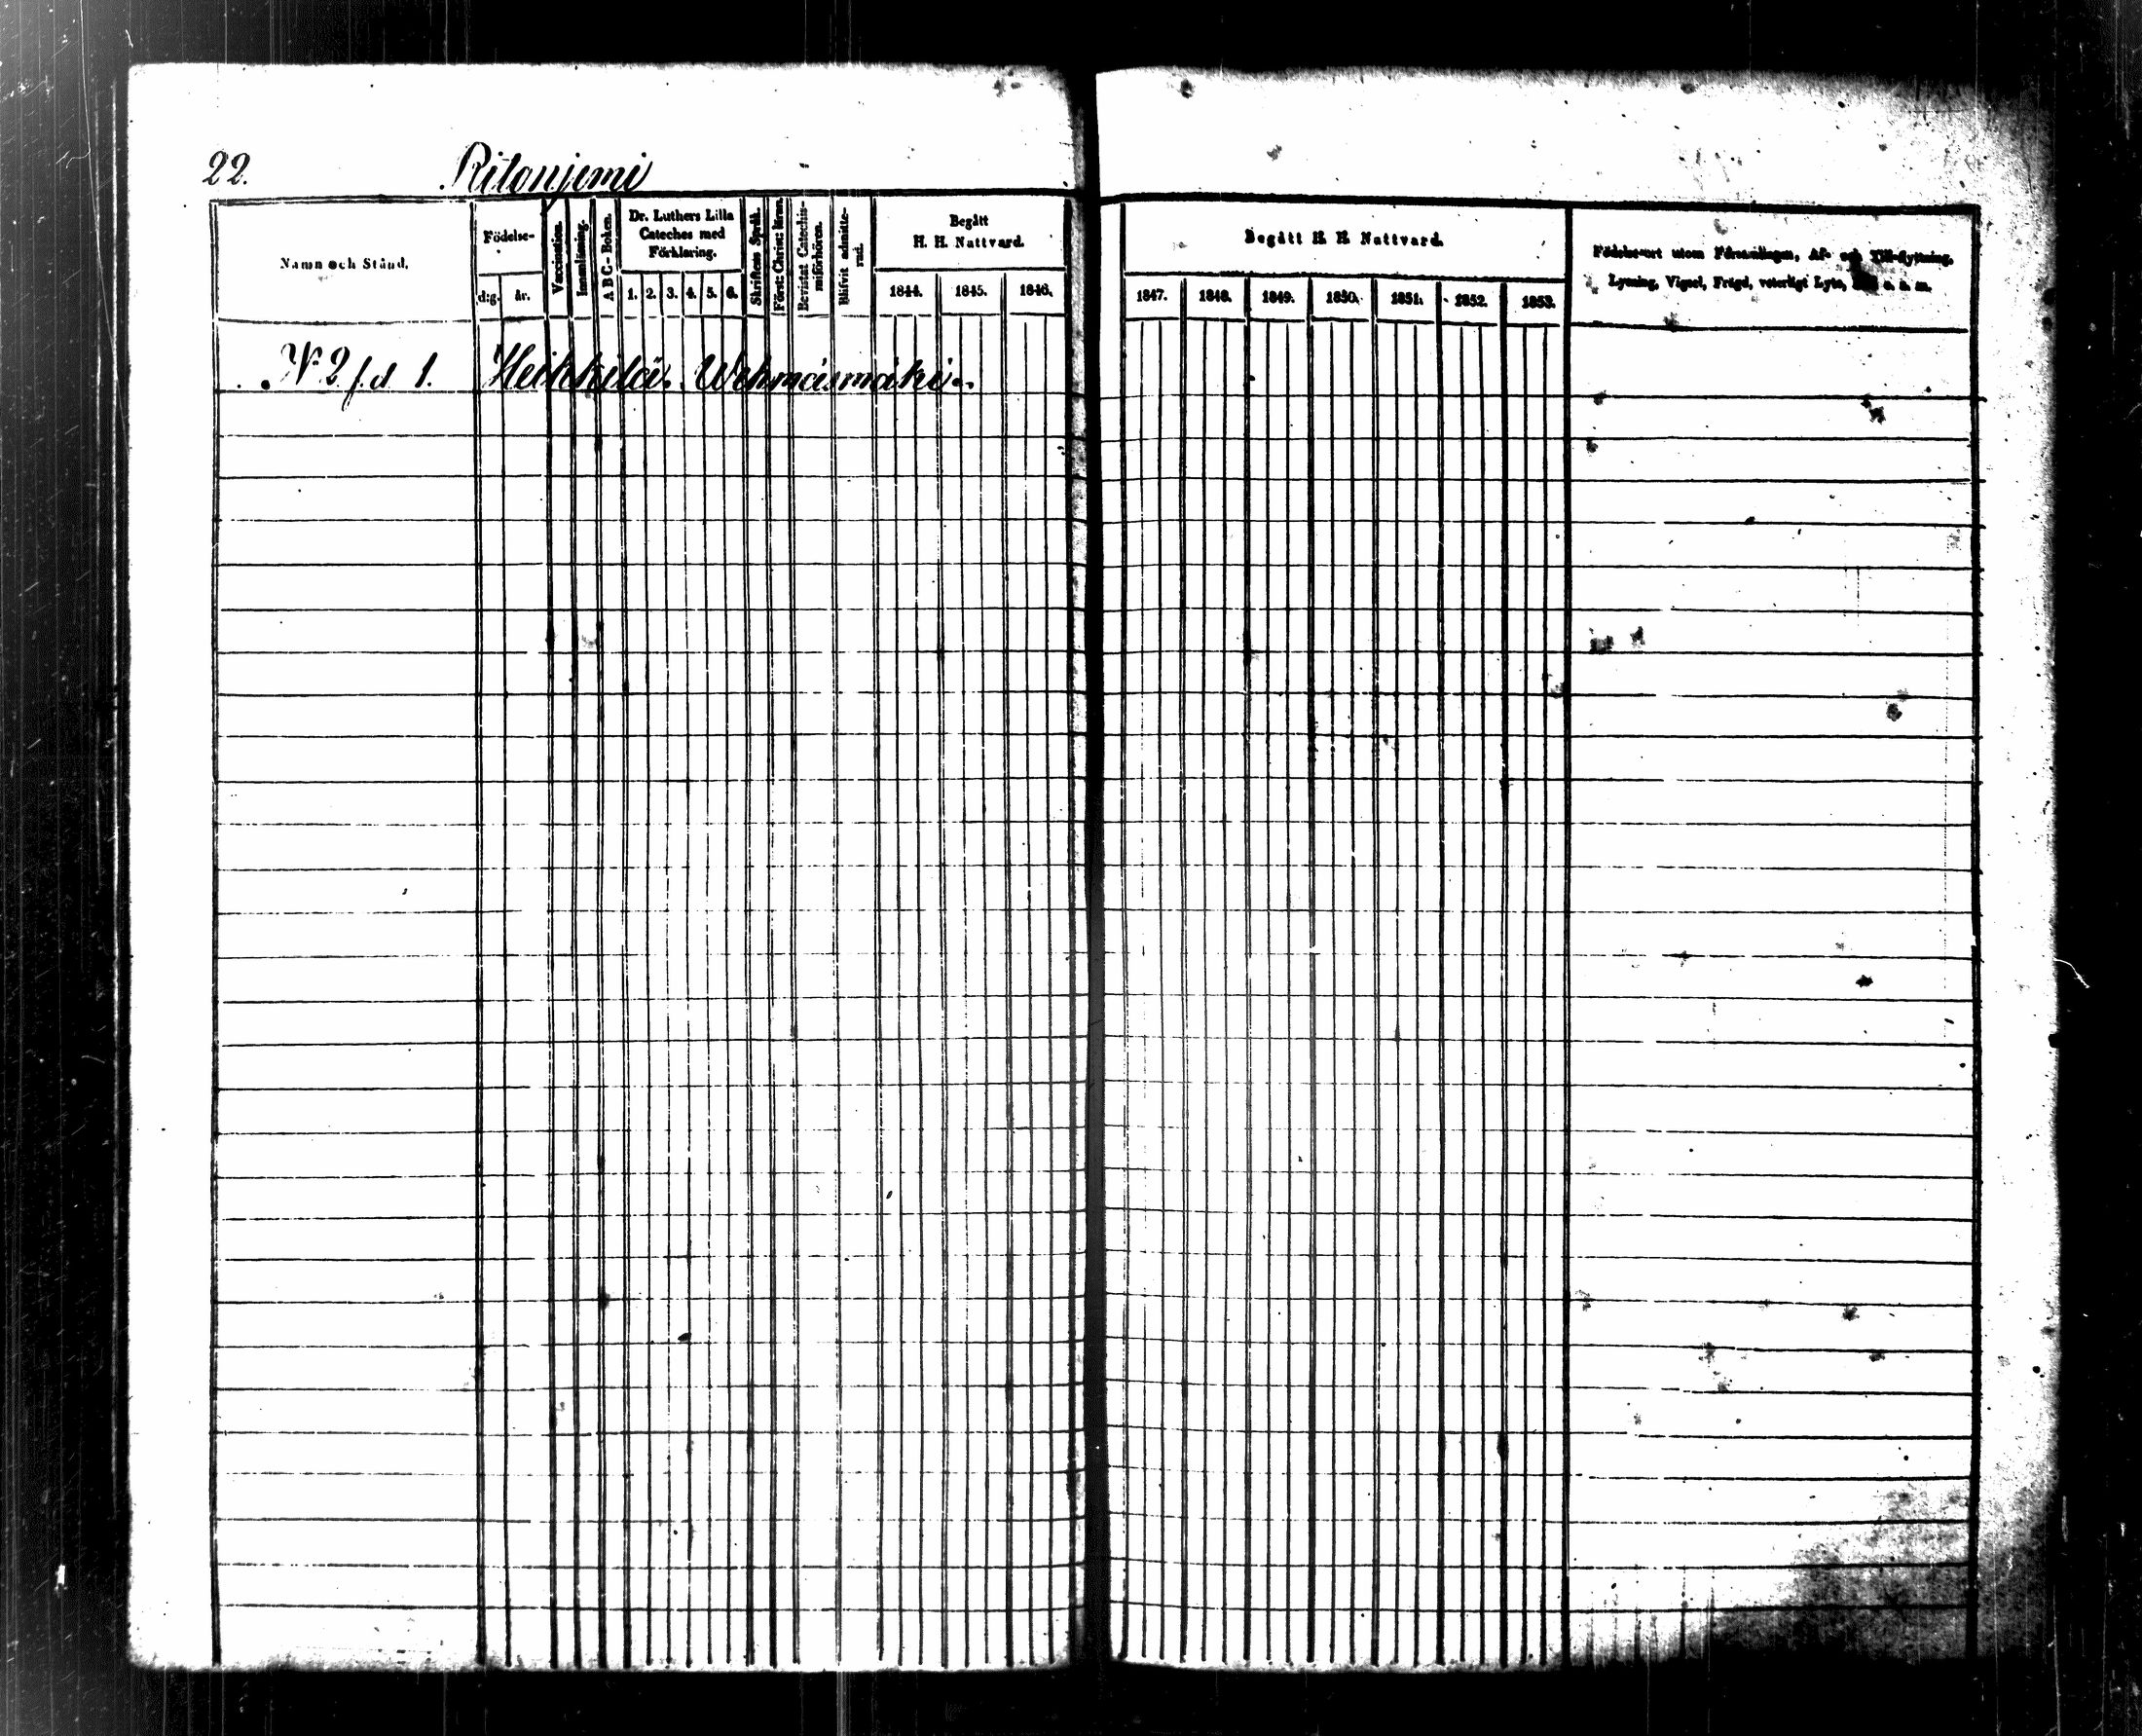 22. Ritanjemi
Namn och Stånd.
Födelse-
d:g. år.
Vaccination.
Innanläsning.
ABC-Boken.
Dr. Luthers Lilla
Cateches med
Förklaring.
1. 2. 3. 4. 5. 6.
Skriftens Språk.
Först: Christ: läran.
Bevistat Catechis-
miförhören.
Blifvit admitte-
rad.
Begått
H. H. Nattvard.
1844. 1845. 1846.
Begått H. H. Nattvard.
1847. 1848. 1849. 1850. 1851. 1852. 1853.
Födelse-ort utom Församlingen, Af- och Till-flyttning,
Lysning, Vigsel, Frägd, veterligt Lyte, o. s. m.
N 2 f.d 1. Heikkilä. Wehmäsmäki.